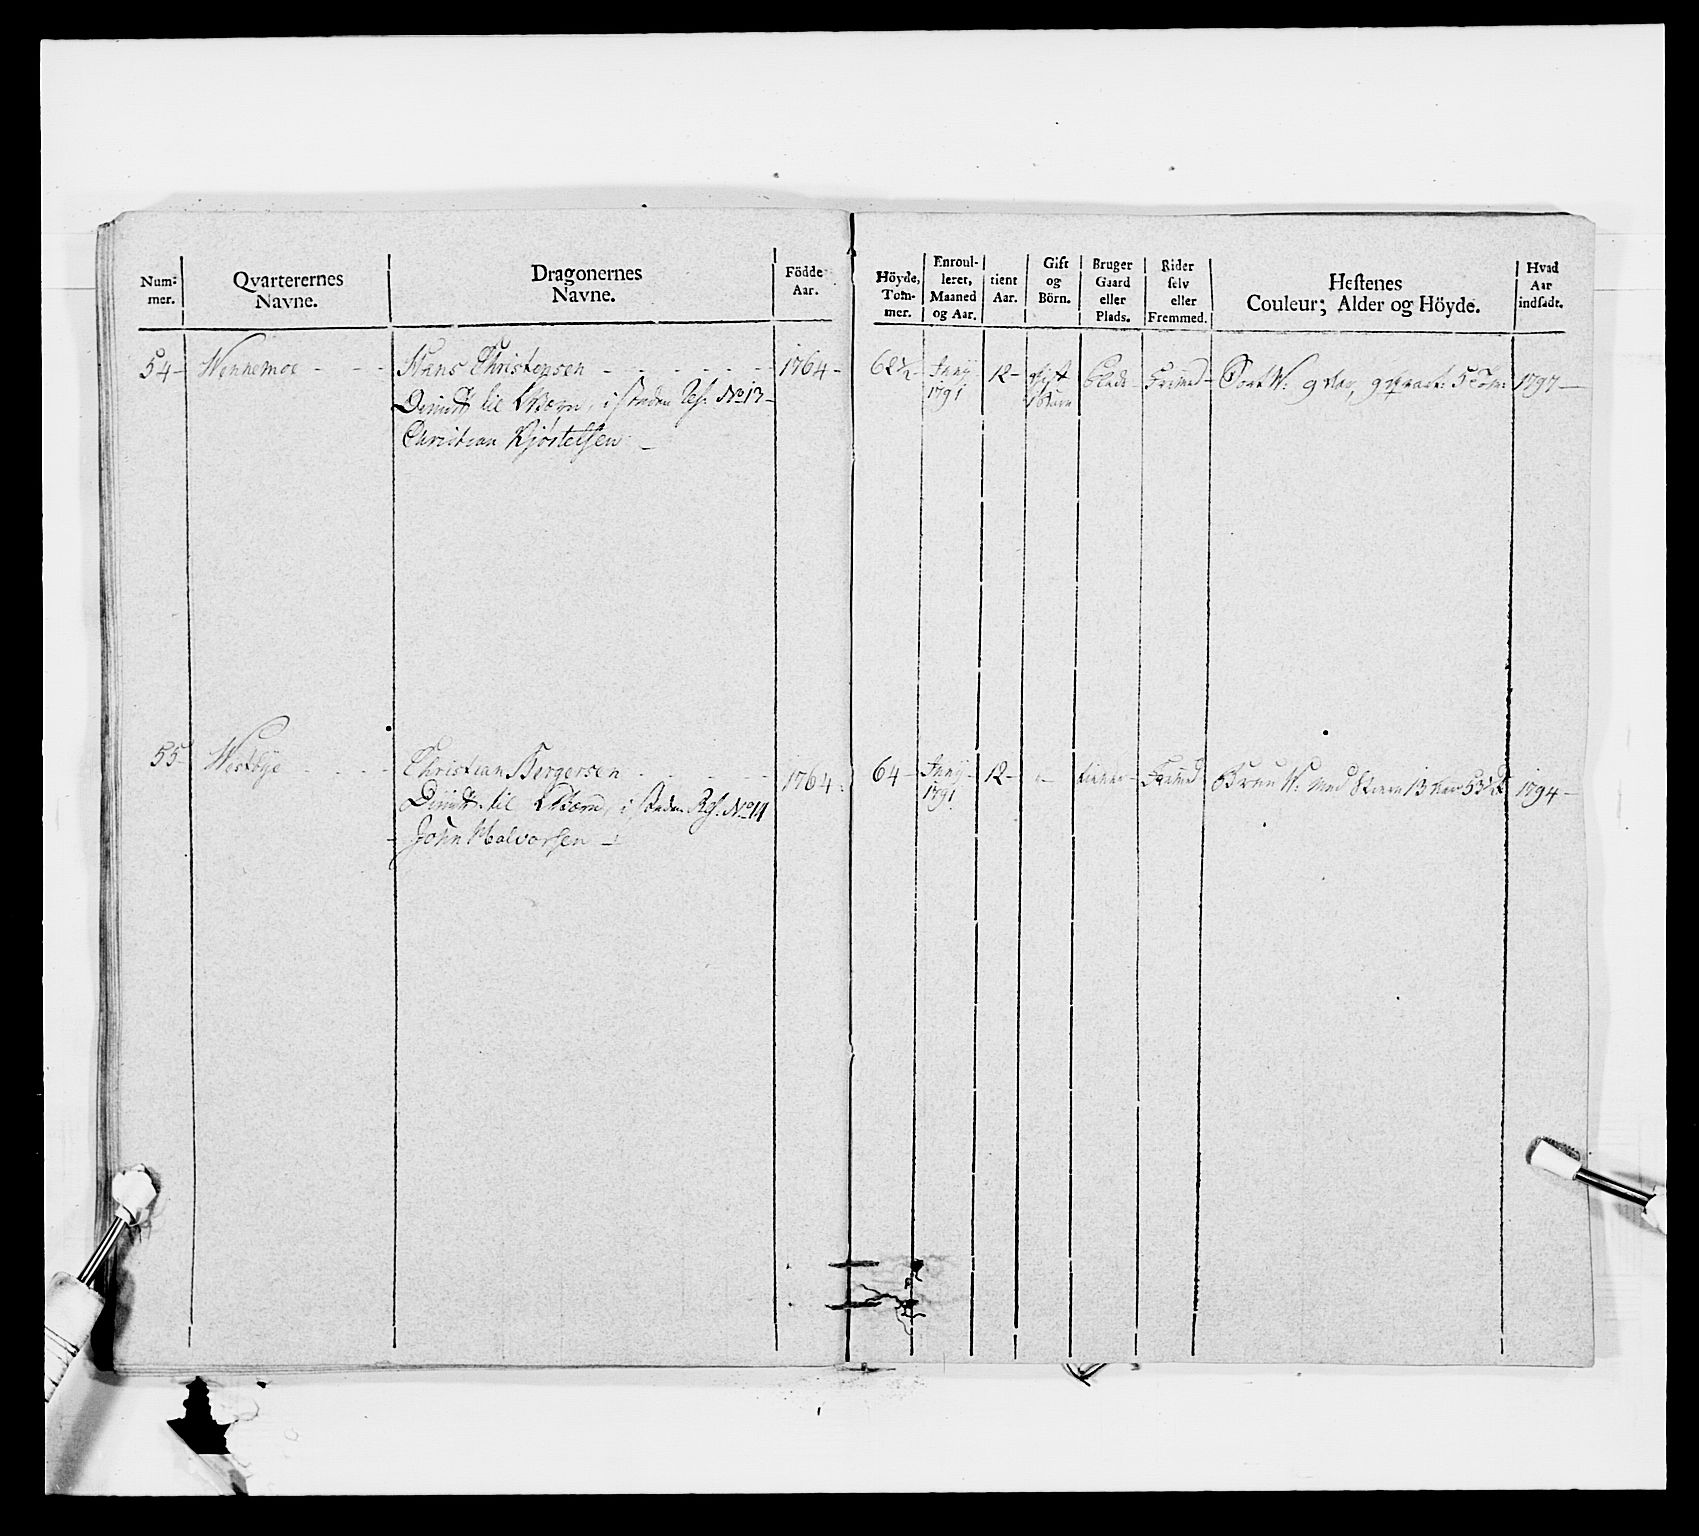 Num:
mer.
Qvarterernes
Navne.
Dragonernes
Navne.
Födde
Aar.
Höyde,
Tom-
mer.
Enroul-
lerer,
Maaned
og Aar.
tient
Aar.
Gift
og
Börn.
Bruger
Gaard
eller
Plads.
Rider
selv
eller
Fremmed.
Hestenes
Couleur; Alder og Höyde.
Hvad
Aar
indsadt.
54 Wennemoe - - -
Hans Christensen - - - - - -
til i steden No 13
Christian Kjöstelsen
1764 -
62½
Juny
1791
12 -
gift
1 Barn
Plads
Fremd -
Sort W: 9 Aar, 9 qvart:
1797 -
55 Westbye - - - -
Christian Bergersen - - - - -
til i steden No 11
John Halvorsen
1764
64 -
Juny
1791
12 -
tiener -
Fremd
Brun W: med Stierne 13 Aar
1794 -